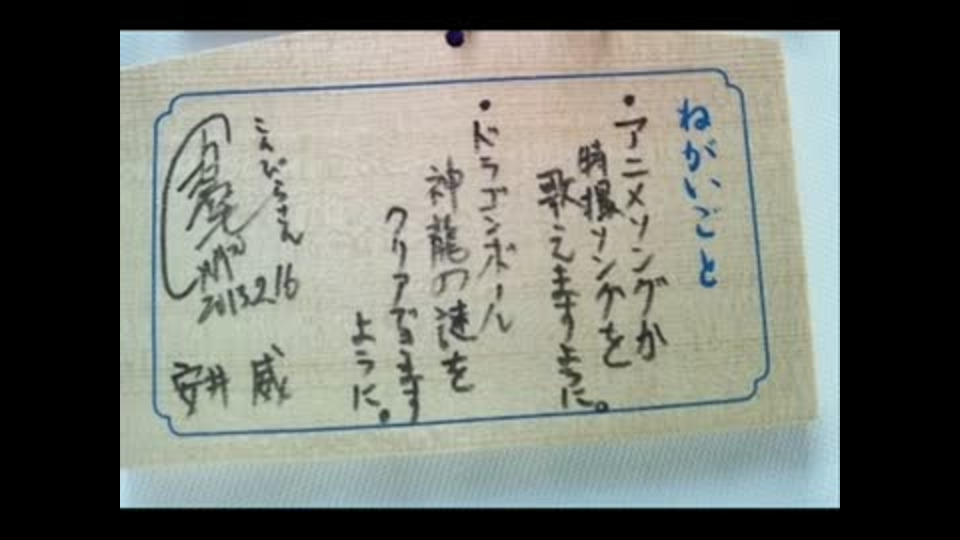 ねがいごと
・アニメソングか
特撮ソングを
歌えますように。
・ドラゴンボール
神龍の謎を
クリアできます
ように。
こんぴらさん
2013.2.16
安井 威